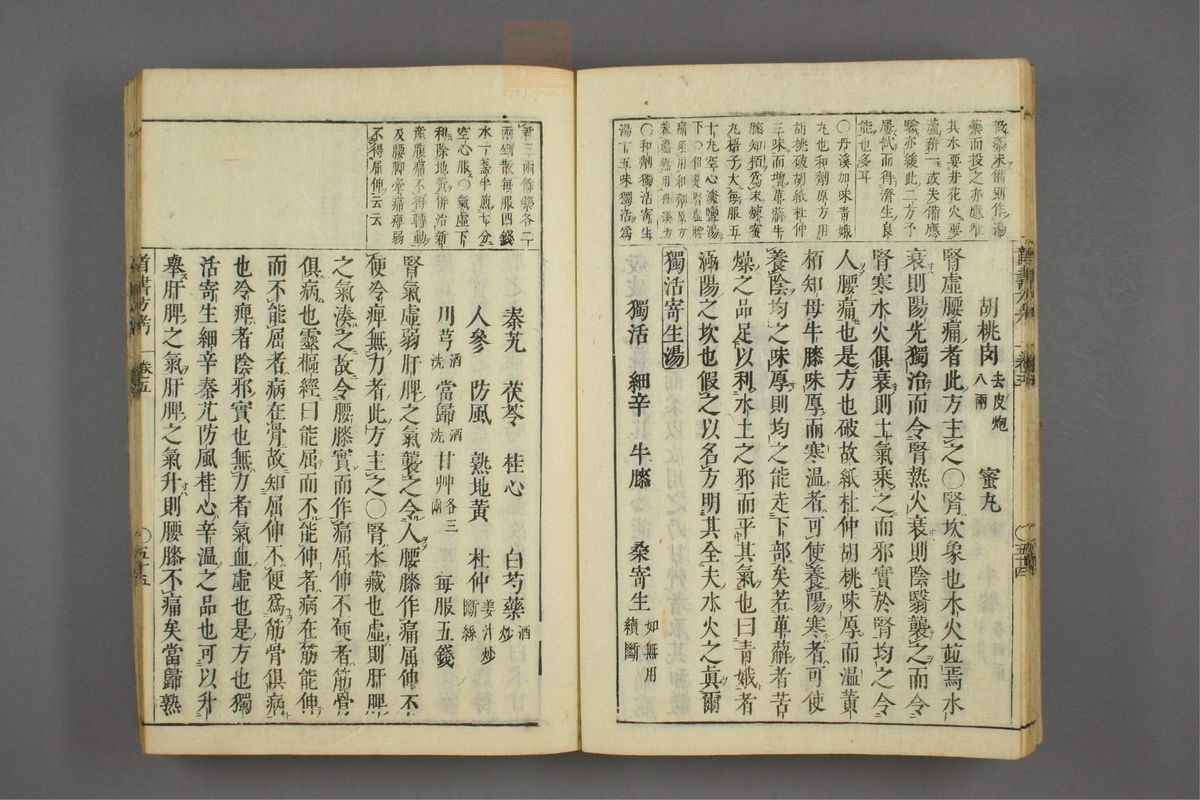 散藥未備則作湯
藥而投之亦應雖
其水要井花火要
蘆薪一或失備應
驗亦緩此二方予
屢試而得濟生良
能也多耳
〇丹溪加味青娥
丸也和劑原方用
胡桃破胡紙杜仲
三味而增萆薢牛
膝知栢爲末煉蜜
丸梧子大每服五
十丸空心淡鹽湯
下〇但是腎虛腰
痛須用和劑原方
兼濕熱用丹溪方
〇和劑獨活寄生
湯十五味獨活爲
胡桃肉去皮炮八兩　蜜丸
腎虛腰痛者此方主之〇腎坎象也水火並焉水
衰則陽光獨治而令腎熱火衰則陰翳襲之而令
腎寒水火俱衰則土氣乘之而邪實於腎均之令
人腰痛也是方也破故紙杜仲胡桃味厚而溫黃
栢知母牛膝味厚而寒溫者可使養陽寒者可使
養陰均之味厚則均之能走下部矣若萆薢者苦
燥之品足以利水土之邪而平其氣也曰青娥者
涵陽之坎也假之以名方明其全夫水火之眞爾
獨活寄生湯
獨活　細辛　牛膝　桑寄生如無用續斷
君三兩餘藥各二
兩剉散每服四錢
水一盞半煎七分
空心服〇氣虛下
利除地黃併治新
產腹痛不得轉動
及腰脚攣痛痺弱
不得屈伸云云
秦艽　茯苓　桂心　白芍藥酒炒
人參　防風　熟地黃　杜仲姜汁炒斷絲
川芎酒洗　當歸酒洗　甘艸各三兩　每服五錢
腎氣虛弱肝脾之氣襲之令人腰膝作痛屈伸不
便冷痺無力者此方主之〇腎水藏也虛則肝脾
之氣湊之故令腰膝實而作痛屈伸不便者筋骨
俱病也靈樞經曰能屈而不能伸者病在筋能伸
而不能屈者病在骨故知屈伸不便爲筋骨俱病
也冷痺者陰邪實也無力者氣血虛也是方也獨
活寄生細辛秦艽防風桂心辛溫之品也可以升
舉肝脾之氣肝脾之氣升則腰膝不痛矣當歸熟